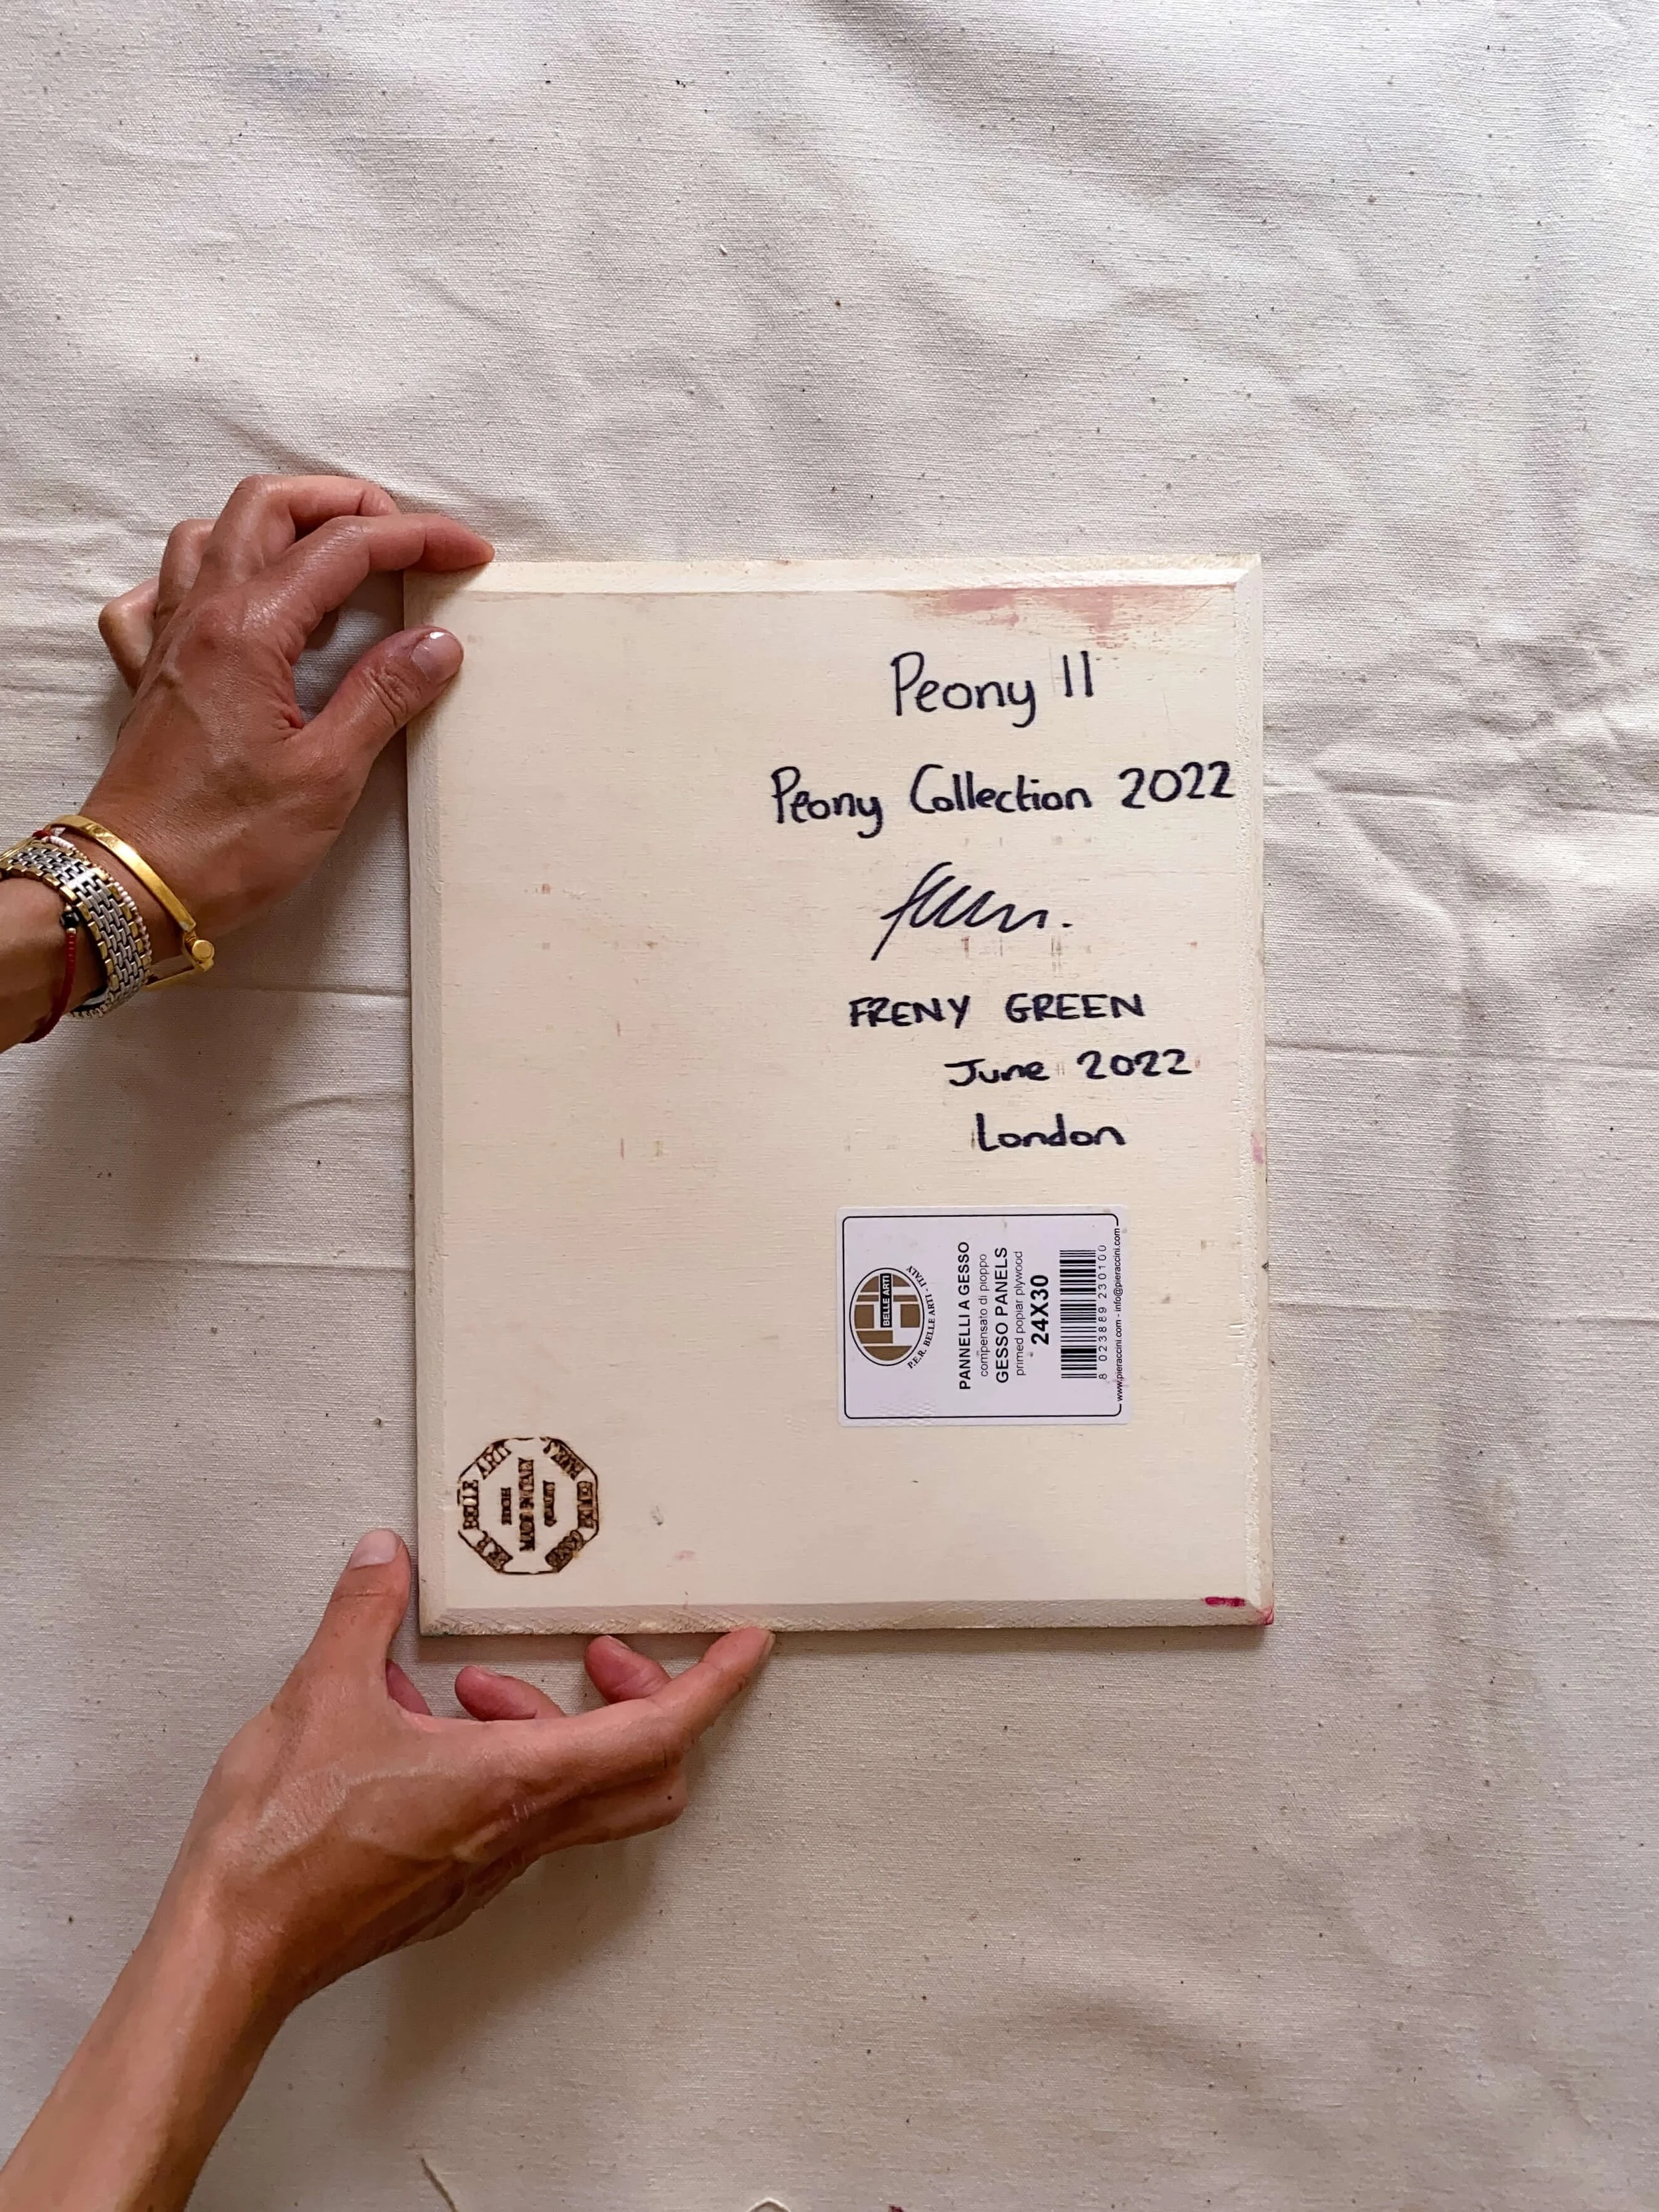 Peony II
Peony Collection 2022
FRENY GREEN
June 2022
London
BELLE ARTI
P.E.R. BELLE ARTI - ITALY
PANNELLI A GESSO
compensato di pioppo
GESSO PANELS
primed poplar plywood
24X30
8 023889 230100
www.pieraccini.com - info@pieraccini.com
P.E.R. BELLE ARTI
HIGH
MADE IN ITALY
QUALITY